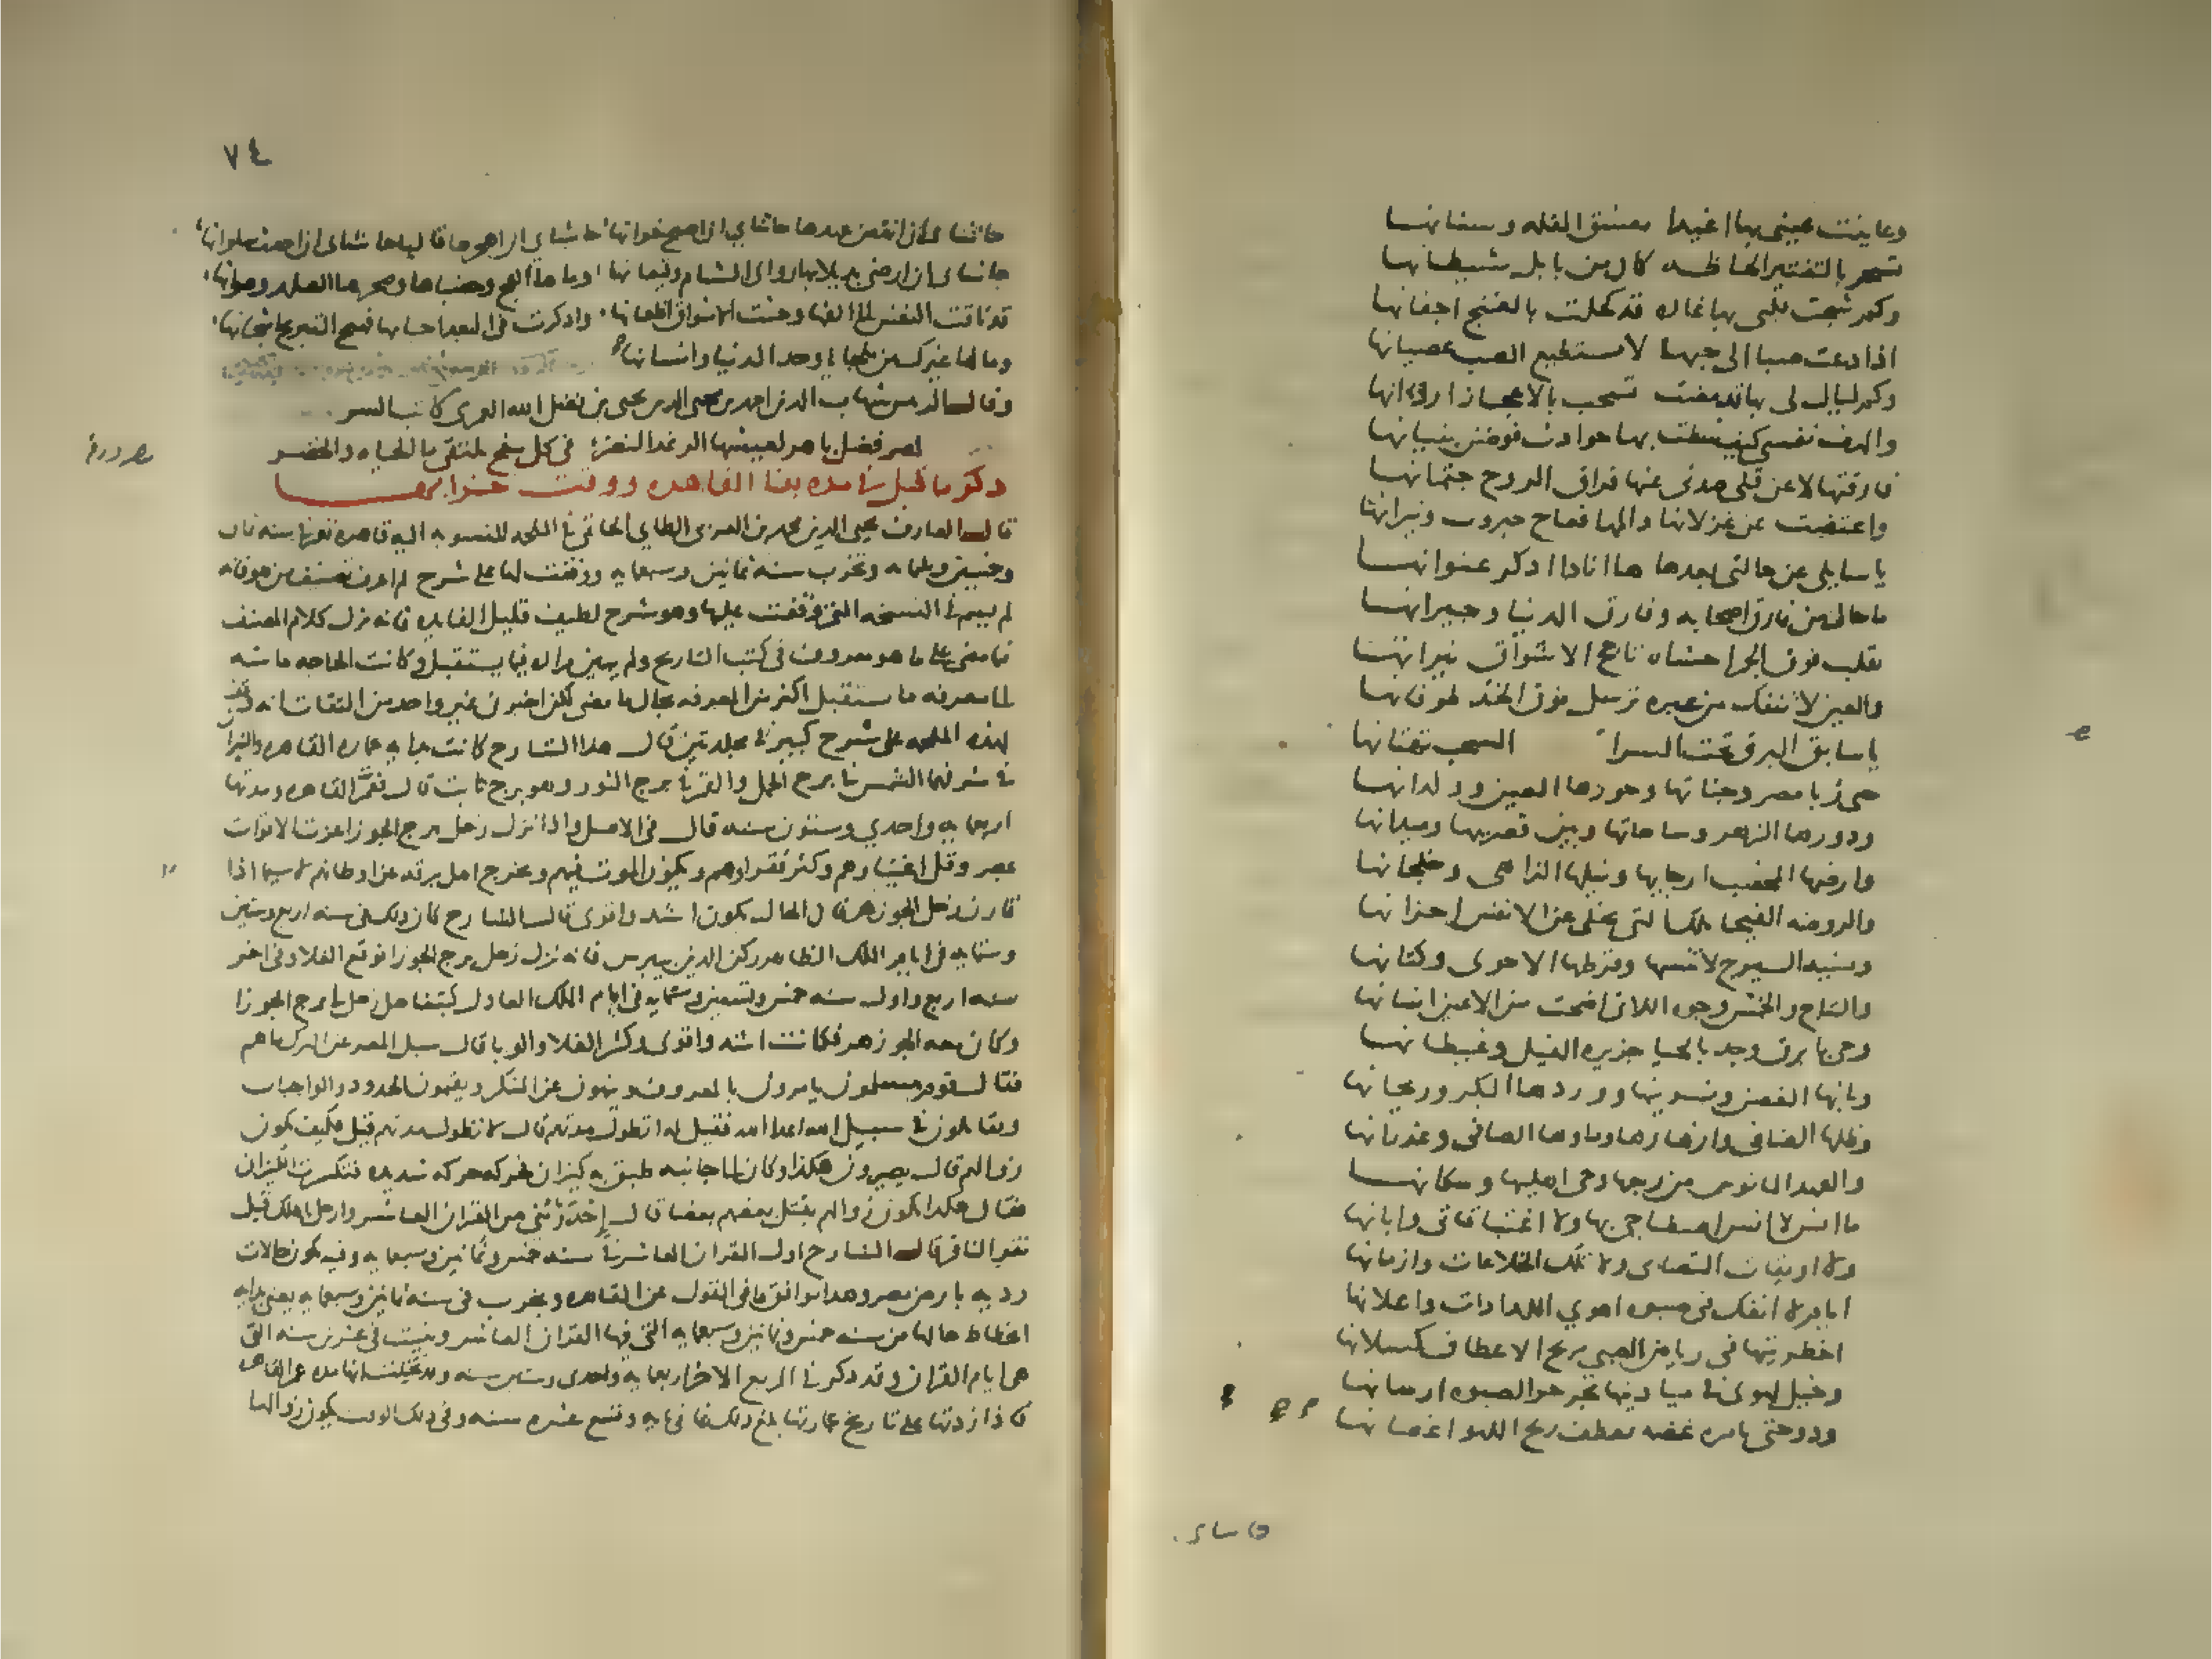 وعاينت عيني بها اغيدا معشق القله وسنانها
تسحر بالتفتير الحاظه كان من بابل شيطانها
وكم شجت قلبي بها غاده قد كحلت بالغنج اجفانها
اذا دعت صبا الى حبها لا يستطيع الصب عصيانها
وكم ليال لي بها قد مضت تسحب بالاعجاز اردانها
والهف نفسي كيف شطت بها حوادث قوضن بنيانها
فارقتها لا عن قلى صدني عنها فراق الروح جثمانها
واعتضت عن غزلانها والمها نعاج حيروت وثيرانها
يا سايلي عن حالتي بعدها ها انا ذا اذكر عنوانها
ما حال من فارق اصحابه وفارق الدنيا وجيرانها
تقلب فوق الجمر احشاه تاجج الاشواق نيرانها
والعين لا تنفك من عبره ترسل فوق الخد طوفانها
يا سابق البرق تحت السرا السحب تهتانها
حي ربا مصر وجناتها وحورها العين وولدانها
ودورها الزهر وساحاتها وبين قصريها وميدانها
وارضها المخصب ارجايها ونيلها الزاهي وخلجانها
والروضه الفيحا تلك التي تجلى عن الانفس احزانها
ومنيه السيرج لا تنسها وقرطها الاحوى وكتانها
والتاج والخمس وجوه اللاتي اضحت من الاعين انسانها
وحي يا برق وجد بالحيا جزيره الفيل وغيطانها
وبانها الغض ونسرينها ووردها البكر وريحانها
وظلها الضافي وازهارها وماوها الصافي وغدرانها
والعهد المانوس من ربعها وحي اهليها وسكانها
ما انس لا انس اصطباحي بها ولا اغتباقاتي وابانها
ولا اويقات التصابي ولا تلك الخلاعات وازمانها
ايام لا انفك في صبوه اهوى اللذاذات واعلانها
اخطر تيها في رياض الصبي مرنح الاعطاف كسلانها
وخيل لهوي في ميادينها تجر حر الصبوه ارسانها
ودوحتي ناضره غضه تعطف ريح اللهو اغصانها
٧٤
حاشاي ان انقض عهدها حاشاي ان اصبح خوانها حاشاي ان اهجرها قاليا حاشاي ان احدث سلوانها
حاشاي ان ارضى بديلا بها روابي الشام وقيعانها
قد تاقت النفس الى الفها وحثت الاشواق اظعانها وادكرت في البعد احبابها فهيج التبريح اشجانها
وما لها غيرك من ملجا يا اوحد الدنيا وانسانها
وقال الريس شهاب الدين احمد بن محيى الدين يحيى بن فضل الله العمري كاتب السر
لمصر فضل باهر لعيشها الرغد النضر في كل سفح يلتقي ما الحياه والخضر
ذكر ما قيل في مده بقا القاهره ووقت خرابها
قال العارف محيى الدين محمد بن العربي الطاي الحاتمي في الملحمه المنسوبه اليه قاهره تعمر في سنه ثمان
وخمسين وثلثمايه وتخرب سنه ثمانين وسبعمايه ووقفت لها على شرح لم اعرف تصنيف من هو فانه
لم يسم في النسخه التي وقفت عليها وهو شرح لطيف قليل الفايده فانه ترك كلام المصنف
فيما مضى على ما هو معروف في كتب التاريخ ولم يبين مراده فيما يستقبل وكانت الحاجه ماسه
لمعرفه ما يستقبل اكثر من المعرفه بحال ما مضى لكن اخبرني غير واحد من الثقات انه وقف
لهذه الملحمه على شرح كبير في مجلدتين قال هذا الشارح كانت بدايه عماره القاهره والنيران
في شرفهما الشمس في برج الحمل والقمر في برج الثور وهو برج ثابت قال فعمر القاهره ومدتها
اربعمايه واحدي وستون سنه قال في الاصل واذا نزل زحل برج الجوزا عزت الاقوات
بمصر وقل اغنياوهم وكثر فقراوهم ويكون الموت فيهم ويخرج اهل برقه عن اوطانهم لا سيما اذا
قارن زحل الجوزهر فان الحال يكون اشد واقوى قال الشارح كان ذلك في سنه اربع وستين
وستمايه في ايام الملك الظاهر ركن الدين بيبرس فانه نزل زحل برج الجوزا فوقع الغلا وفي اخر
سنه اربع واول سنه خمس وتسعين وستمايه في ايام الملك العادل كتبغا حل زحل في برج الجوزا
وكان معه الجوزهر فكانت اشد واقوى وكثر الغلا والوبا قال سيل المعز عن الترك ما هم
فقال قوم مسلمون يامرون بالمعروف وينهون عن المنكر ويقيمون الحدود والواجبات
ويقاتلون في سبيل الله اعدا الله فقيل له اتطول مدتهم قال لا تطول مدتهم قيل فكيف يكون
زوالهم قال يصيرون هكذا وكان الى جانبه طبق به كيزان فحركه حركه شديده فتكسرت الكيزان
فقال هكذا يكون زوالهم يقتل بعضهم بعضا قال احذر بني من القران العاشر وارحل باهلك قبل
نقر الناقر قال الشارح اول القران العاشر في سنه خمس وثمانين وسبعمايه وفيه يكون حالات
رديه بارض مصر وهذا يوافق ما في القول عن القاهره وتخرب في سنه ثمانين وسبعمايه يعني بدايه
انحطاط حالها من سنه خمس وثمانين وسبعمايه التي فيها القران العاشر ويثبت في عشرين سنه التي
هي ايام القران وقد ذكر في الربع الاخر اربعمايه واحدى وستين سنه
فاذا زدتها على تاريخ عمارتها بلغ ذلك ثمانمايه وتسع عشره سنه وفي ذلك الوقت يكون زوالها